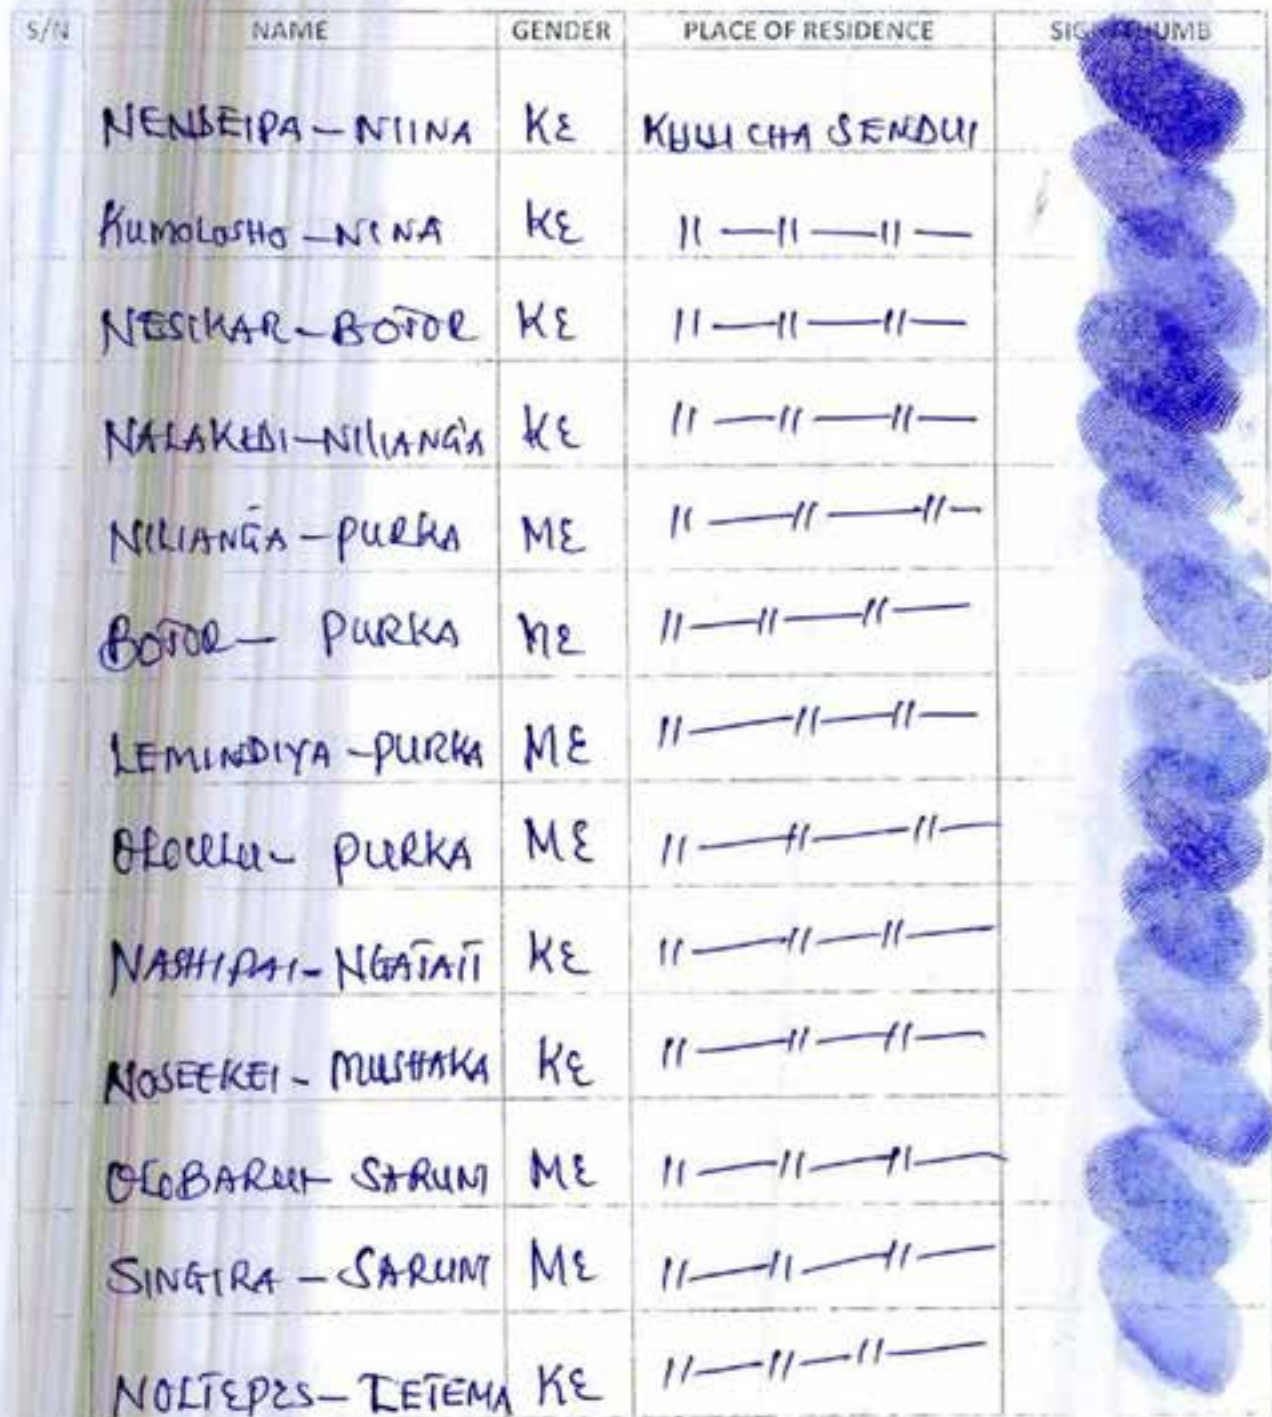 S/N NAME GENDER PLACE OF RESIDENCE SIGN THUMB
NENSEIPA - NIINA KE SENDUI
KUMOLOSHO - NINA KE 11 — 11 — 11 —
NESIKAR - BOTOR KE 11 — 11 — 11 —
NALAKEDI - NILIANGA KE 11 — 11 — 11 —
NILIANGA - PURKA ME 11 — 11 — 11 —
BOTOR - PURKA 11 — 11 — 11 —
LEMINDIYA - PURKA ME 11 — 11 — 11 —
OLOULU - PURKA ME 11 — 11 — 11 —
NASHIPAI - NGATAIT KE 11 — 11 — 11 —
NOSEEKEI - MUSHAKA KE 11 — 11 — 11 —
SARUNI ME 11 — 11 — 11 —
SINGIRA - SARUNI ME 11 — 11 — 11 —
NOLTEPES - LETEMA KE 11 — 11 — 11 —